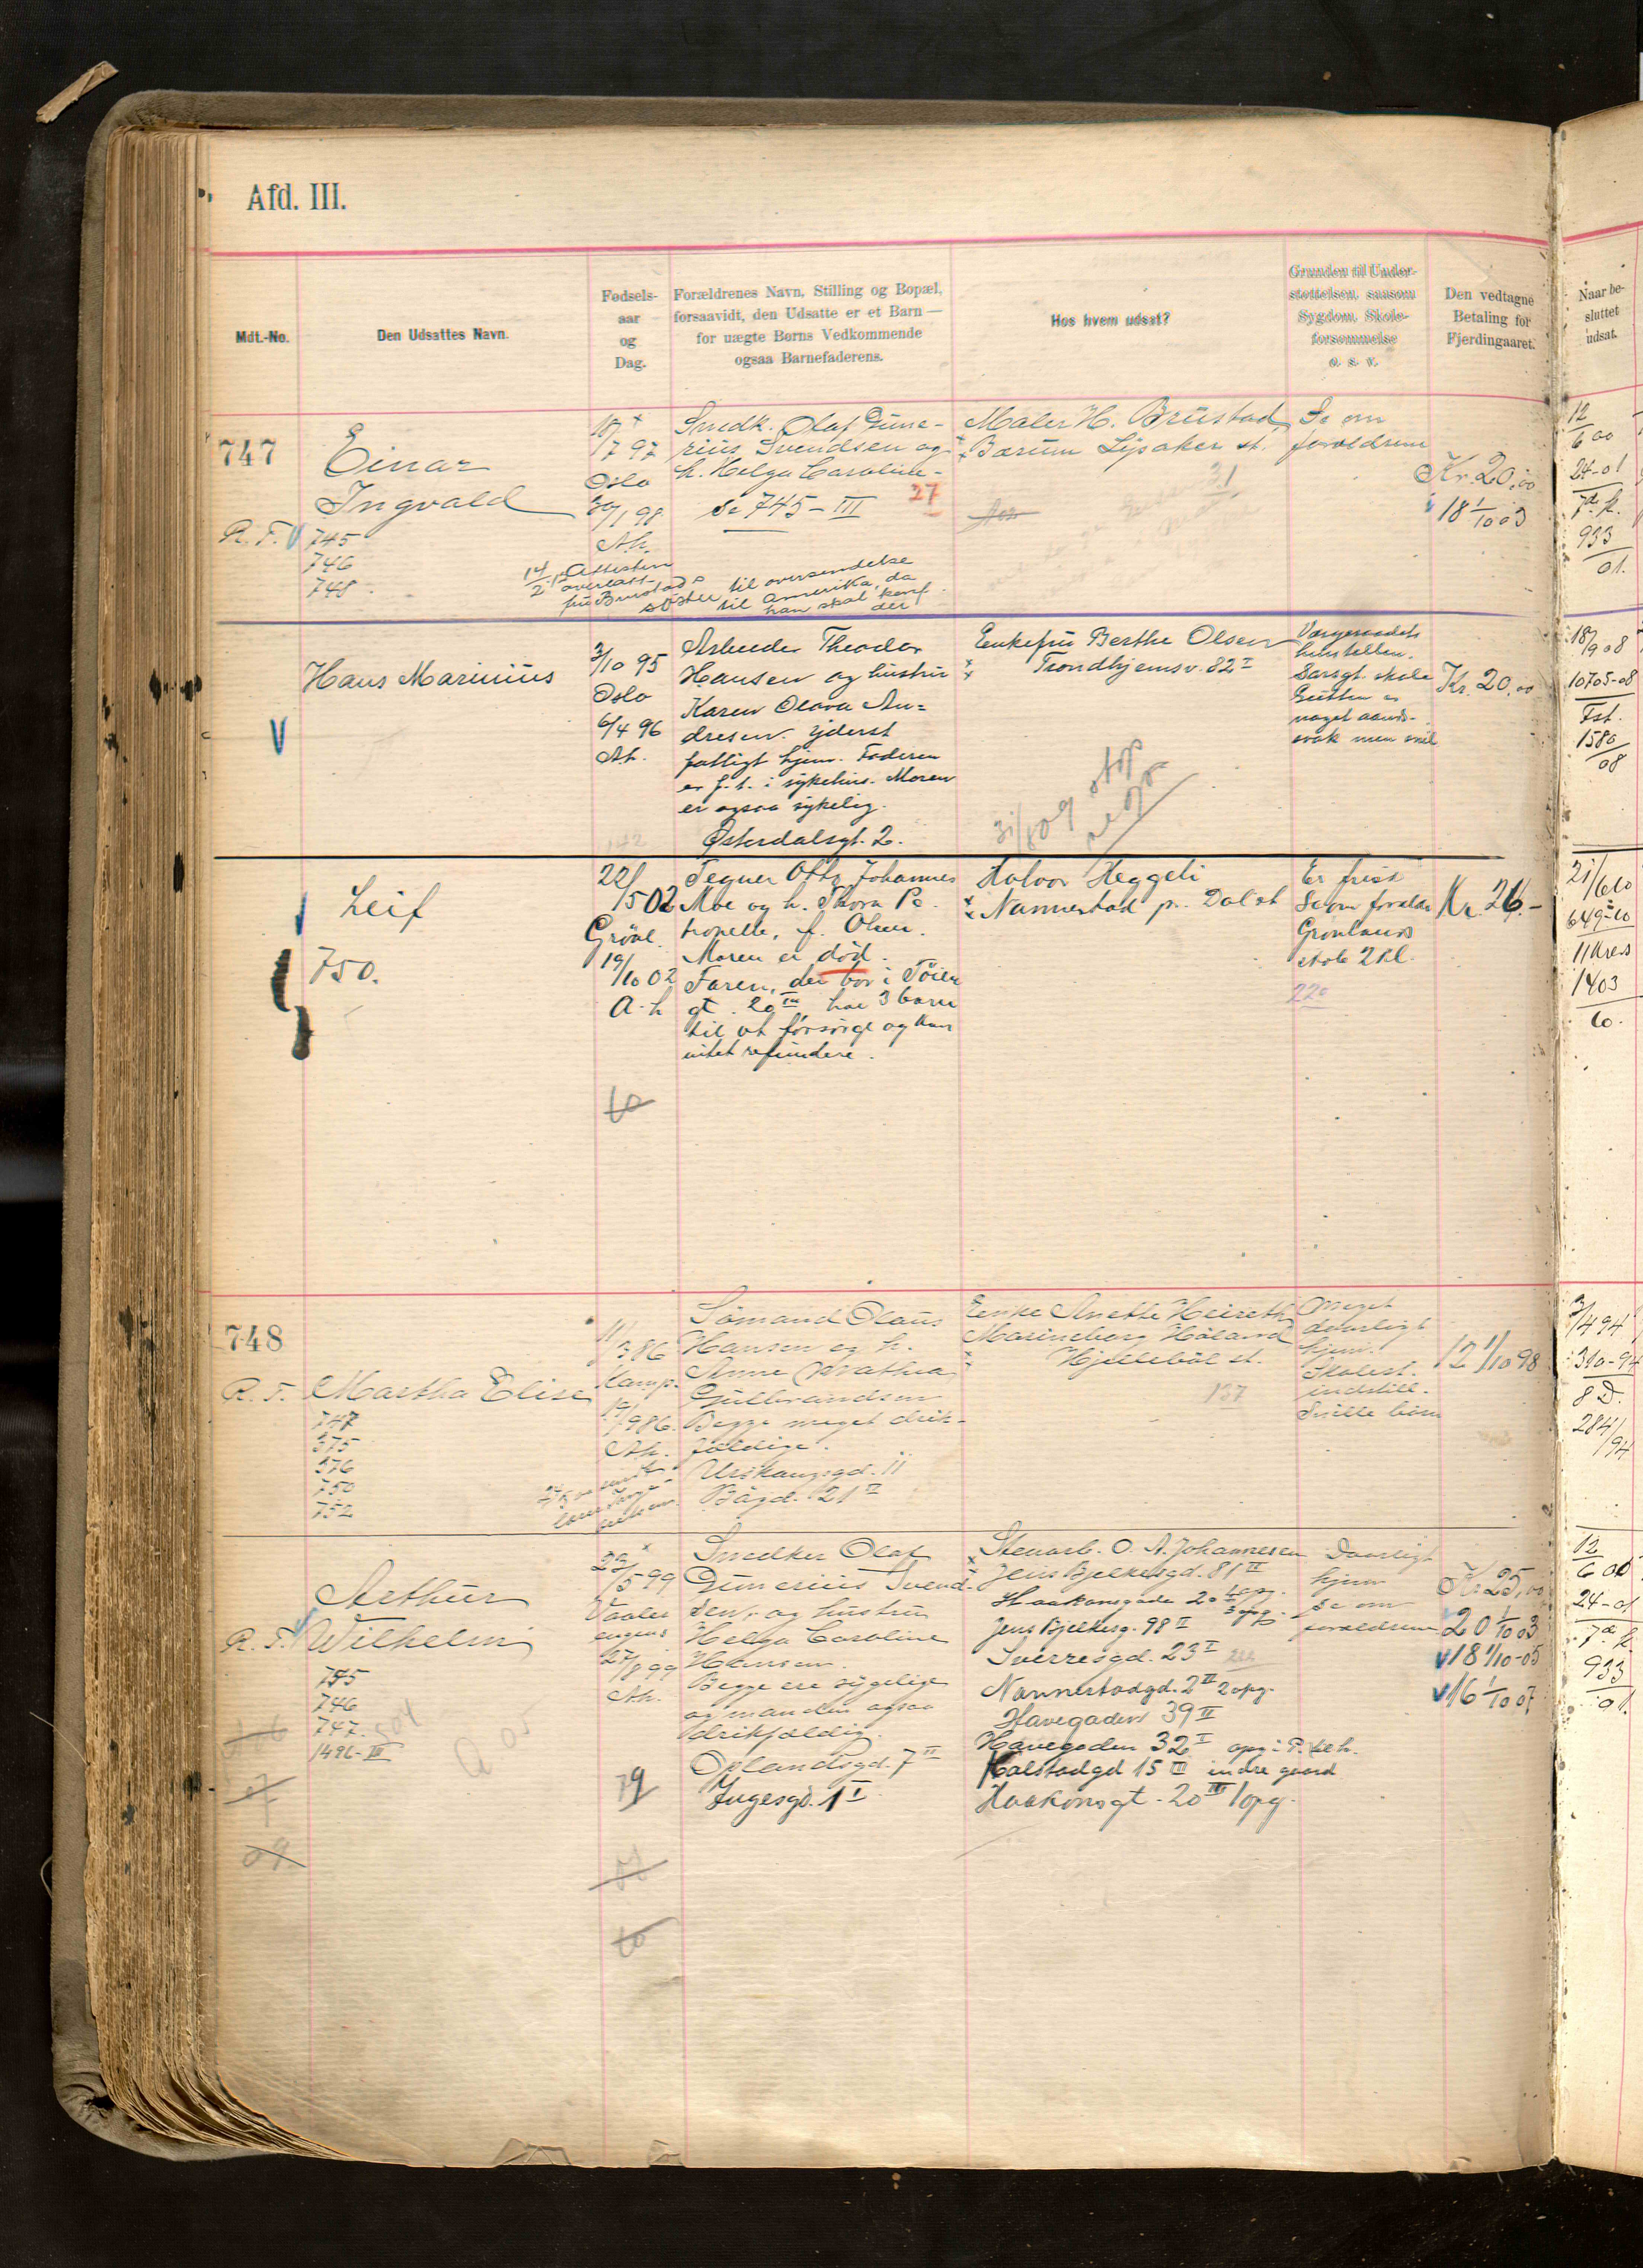 Afd. III.
Mdt.-No.
Den Udsattes Navn.
Fødsels-
aar
og
Dag.
Forældrenes Navn, Stilling og Bopæl,
forsaavidt, den Udsatte er et Barn —
for uægte Børns Vedkommende
ogsaa Barnefaderens.
Hos hvem udsat?
Grunden til Under-
støttelsen, saasom
Sygdom, Skole-
forsømmelse
o. s. v.
Den vedtagne
Betaling for
Fjerdingaaret.
Naar be-
sluttet
udsat.
747
Einar
Ingvald
R. F.
745
746
748
18/7 97
Oslo
30/1 98
Ah.
Smedk. Olaf Gune-
rius Svendsen og
h. Helga Caroline-
Se 745 - III
27
14/2 Attesten
overlatt
fru Brustads
søster til oversendelse
til Amerika, da
han skal konf.
der
Maler H. Brustad
Bærum Lysaker st.
31
Se om
forældrene
Kr. 20,00
18 1/10 03
12/6 00
24-01
7de k.
933
01.
Hans Marinius
3/10 95
Oslo
6/4 96
Ah.
Arbeider Theodor
Hansen og hustru
Karen Olava An=
dresen. yderst
fattigt hjem. Faderen
er f. t. i sykehus. Moren
er ogsaa sykelig.
Østerdalsgt. 2.
Enkefru Berthe Olsen
Trondhjemsv. 82 I
Værgeraadets
henstillen.
Sarsgt. skole
Gutten er
noget aands-
svak men snil
Kr. 20,00
18/9 08
10705-08
Fst.
1580
08
Leif
750.
22/5 02
Grönl.
19/10 02
A. h
Tegner Otto Johannes
Moe og h. Thora Pe-
tronelle, f. Olsen.
Moren er död.
Faren, der bor i Töien
gt. 20 III har 3 barn
til at forsörge og kan
intet refundere.
Halvor Heggeli
Nannestad pr. Dal st
Er frisk
Se om foræld.
Grønlands
skole 2 kl.
220
Kr. 26.-
21/6 10
649-10
11 kreds
1403
10.
748
R. F.
Martha Elise
747
375
376
750
752
11/3 86
Kamp.
12/9 86.
Ah.
Sömand Olaus
Hansen og h.
Anne Mathea
Gulbrandsen
Begge meget drik-
fældige.
Urskougsgd. 11
Bögd. 21 II
Enke Anette Heireth
Marineborg Höland
Hjellebøl st.
137
Meget
daarligt
hjem.
Skolest.
indstill.
Snille børn
12 1/10 98
3/4 94
310-94
8 D.
284/94
R. F.
Arthur
Wilhelm
745
746
747.
1496-III
22/5 99
Vaaler
engens
27/8 99
Ah.
Smedker Olaf
Gunerius Svend-
sen, og hustru
Helga Caroline
Hansen.
Begge ere sygelige
og manden ogsaa
drikfældig.
Oplandsgd. 7 II
Ingesgd. 1 I
Stenarb. O. A. Johannesen
Jens Bjelkesgd. 81 II
Haakonsgade 20
Jens Bjelkesg. 98 II
Sverresgd. 23 I
Nannestadgd. 2 II 2 opg.
Havegaden 39 II
Havegaden 32 I
Kalstadgd 15 III indre gaard
Haakonsgt. 20 III 1 opg.
Daarligt
hjem
Se om
forældrene
Kr. 25,00
20 1/10 03
18 1/10-05
16 1/10 07
12/6 00
24-01
7de k.
933
01.